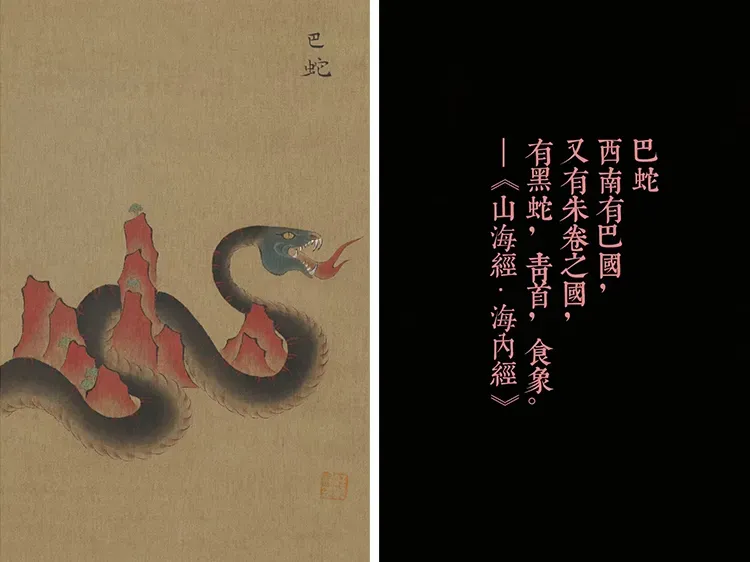 巴蛇
巴蛇
西南有巴國，
又有朱卷之國，
有黑蛇，青首，食象。
—《山海經·海內經》